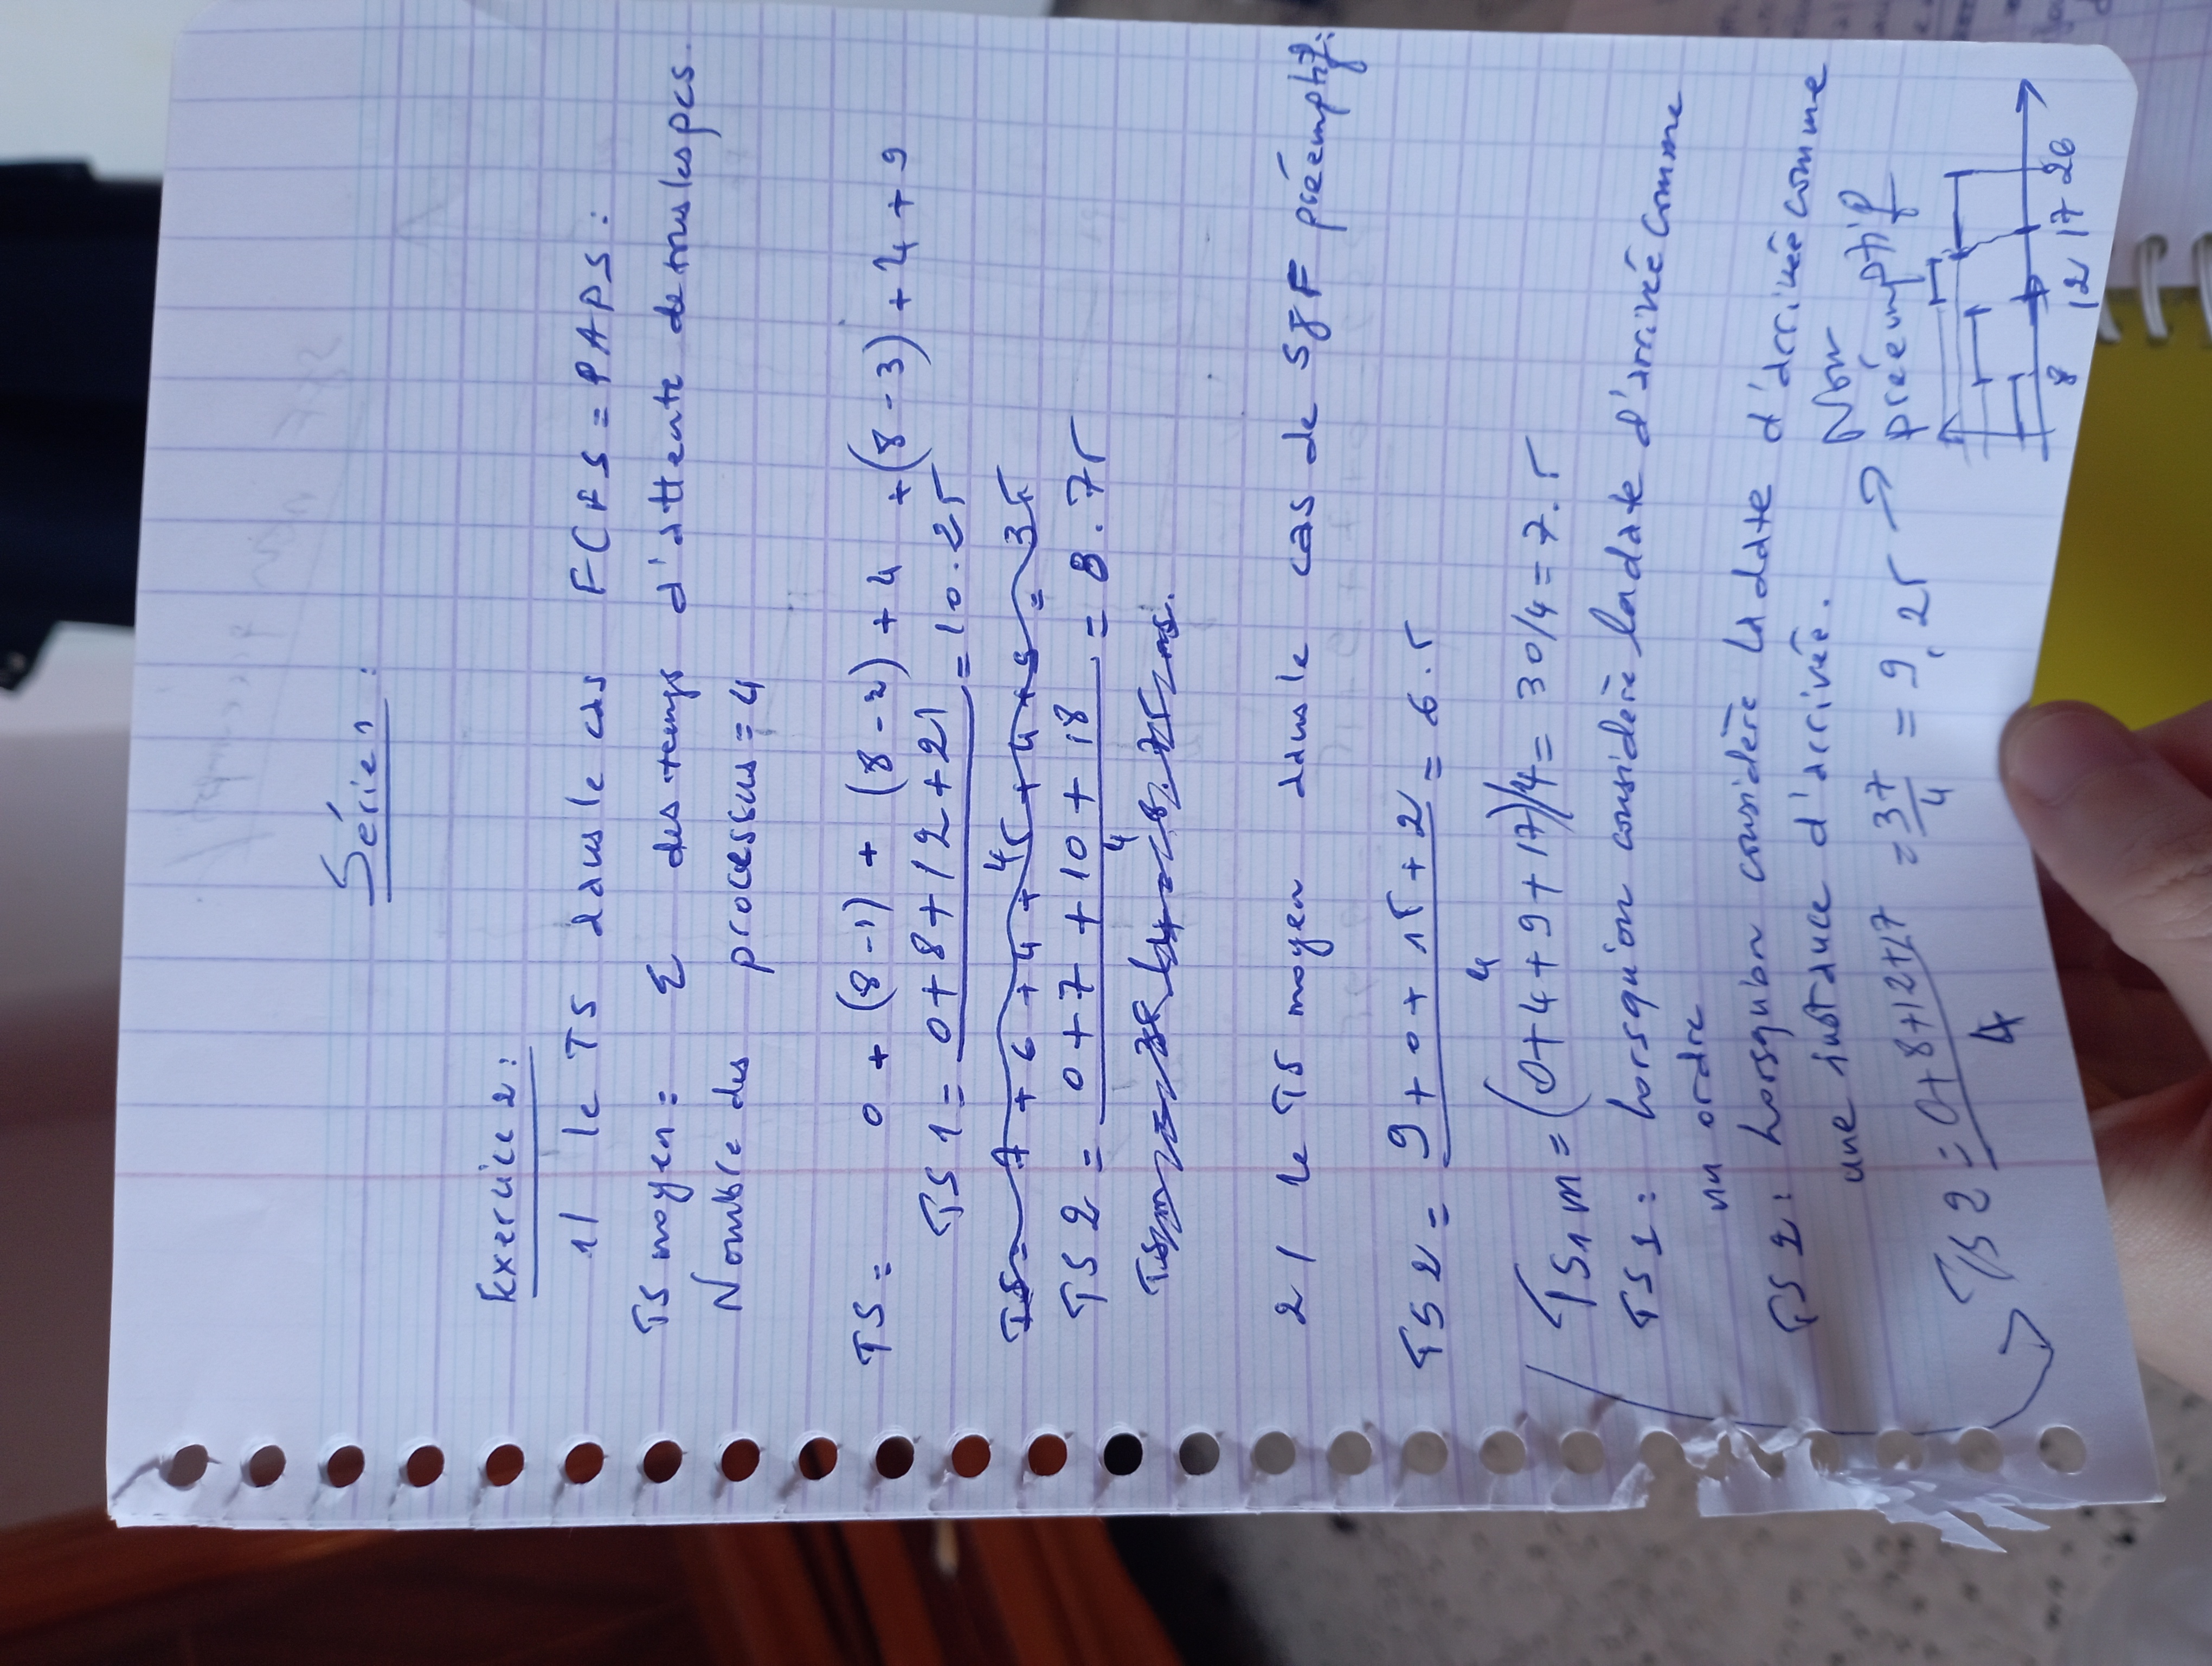 Série 1 :
Exercice 2 :
1/ le TS dans le cas FCFS = PAPS :
TS moyen = Σ des temps d'attente de tous les pcs.
Nombre des processus = 4
TS = 0 + (8 - 1) + (8 - 2) + 4 + (8 - 3) + 4 + 9
TS 1 = 0+8+12+21 / 4 = 10.25
TS = 7 + 6 + 4 + 5 + 4 + 9 = 35
TS 2 = 0+7+10+18 / 4 = 8.75
TSm = 35/4 = 8.75 ms.
2/ le TS moyen dans le cas de SJF préemptif :
TS 2 = 9+0+15+2 / 4 = 6.5
TS1 m = (0+4+9+17)/4 = 30/4 = 7.5
TS 1 : Lorsqu'on considère la date d'arrivée comme
un ordre
TS 2 : Lorsqu'on considère la date d'arrivée comme
une instance d'arrivée.
TS 2 = 0+8+12+17 / 4 = 37/4 = 9,25 → Non
préemptif
8 12 17 26